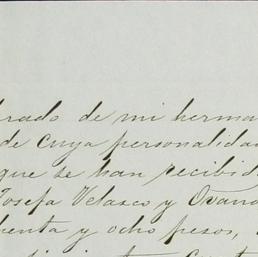 brado de mi herma
de cuya personalidad
que se han recibid
Josefa Velasco y Ovan
henta y ocho pesos,